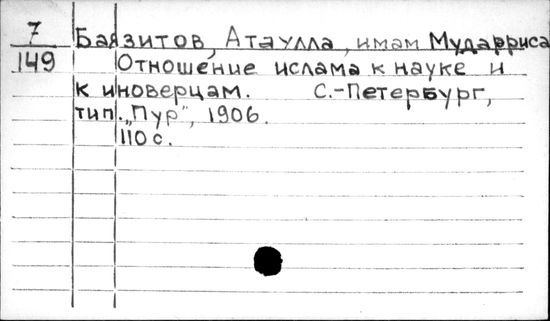 7 Баязитов, Атаулла, имам Мударриса
149 Отношение ислама к науке и
к иноверцам. С.-Петербург,
тип. „Нур", 1906.
110 с.